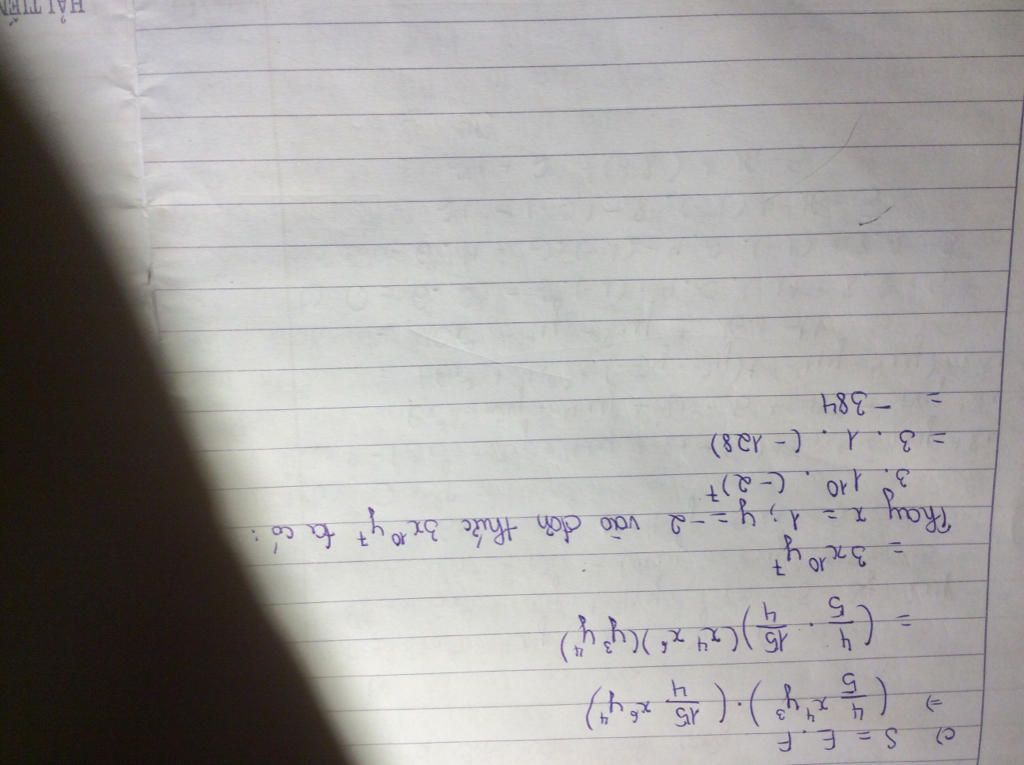 c) S = E . F
=> (4/5 x⁴y³) . (15/4 x⁶y⁴)
= (4/5 . 15/4)(x⁴x⁶)(y³y⁴)
= 3x¹⁰y⁷
Thay x = 1; y = -2 vào đơn thức 3x¹⁰y⁷ ta có:
3. 1¹⁰ . (-2)⁷
= 3 . 1 . (-128)
= -384
HẢI TIẾN